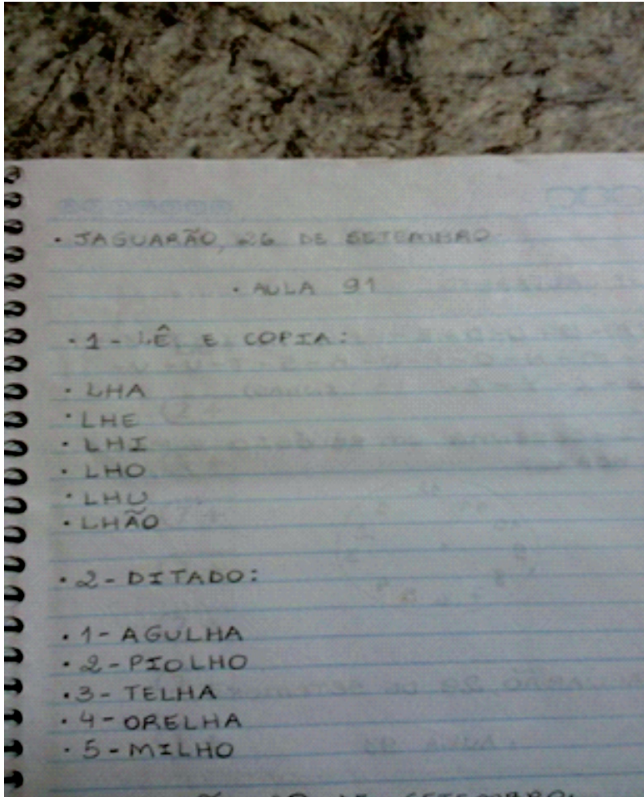 · JAGUARÃO, 26 DE SETEMBRO
· AULA 91
· 1 - LÊ E COPIA:
· LHA
· LHE
· LHI
· LHO
· LHU
· LHÃO
· 2 - DITADO:
· 1 - AGULHA
· 2 - PIOLHO
· 3 - TELHA
· 4 - ORELHA
· 5 - MILHO
DE SETEMBRO